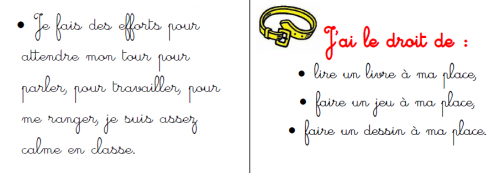 • Je fais des efforts pour
attendre mon tour pour
parler, pour travailler, pour
me ranger, je suis assez
calme en classe.
J'ai le droit de :
• lire un livre à ma place,
• faire un jeu à ma place,
• faire un dessin à ma place.